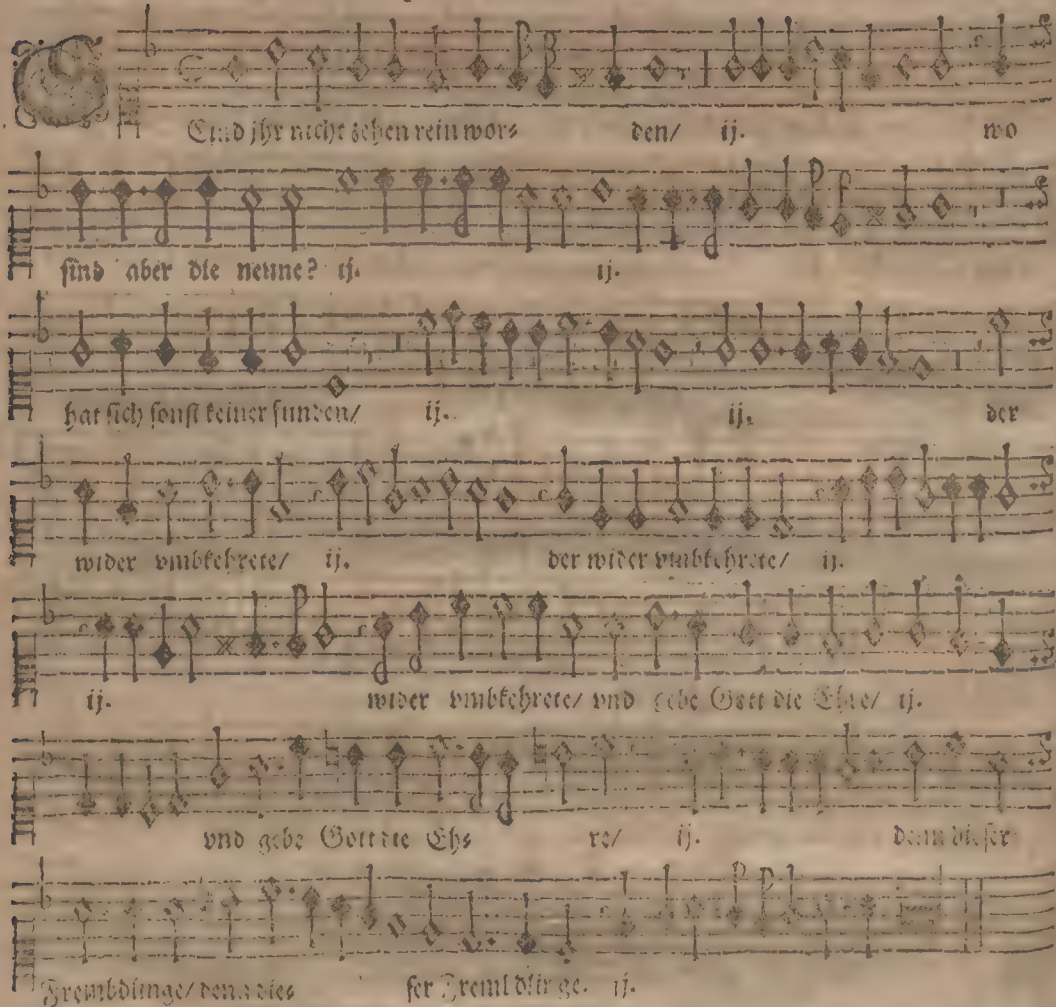 SEind jhr nicht zehen rein wor⸗ den/ ij. wo
sind aber die neune? ij. ij.
hat sich sonst keiner funden/ ij. ij. der
wider vmbkehrete/ ij. der wider vmbkehrete/ ij.
ij. wider vmbkehrete/ vnd gebe Gott die Ehre/ ij.
vnd gebe Gott die Eh⸗ re/ ij. denn dieser
Frembdlinge/ denn die⸗ ser Frembdlinge. ij.